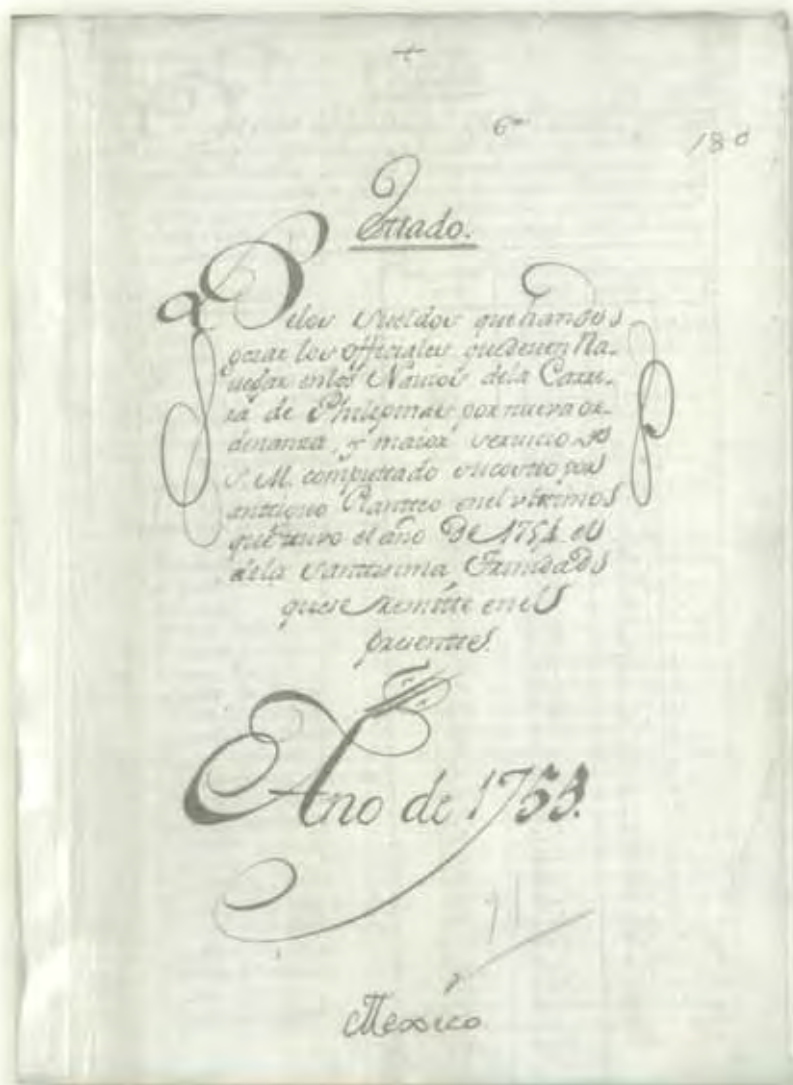 +
6º
180
Estado.
Delos Sueldos que han de
gozar los officiales, que deven Na-
uegar enlos Navios dela Carre-
ra de Philipinas, por nueva or-
denanza, y maior servicio de
S. M. computtado su costto por
anttiguo Plantteo en el vltimo
que tuvo el año De 1751 el
dela Santtisima Trinidad
que se Remitte en el
presentte.
Año de 1753.
71
Mexico